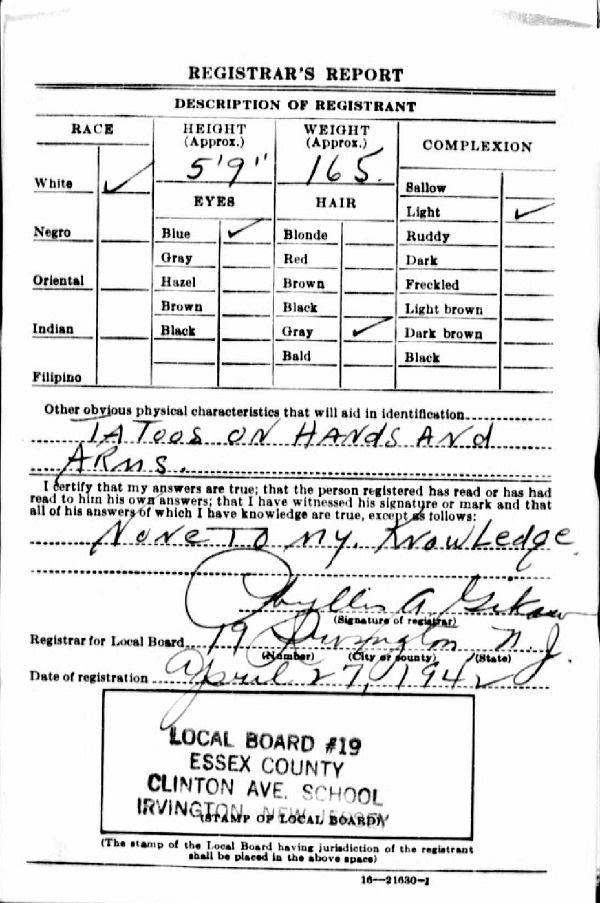 REGISTRAR'S REPORT
DESCRIPTION OF REGISTRANT
RACE
HEIGHT
(Approx.)
WEIGHT
(Approx.)
COMPLEXION
5'9"
165.
White ✓
EYES
HAIR
Sallow
Light ✓
Negro
Blue ✓
Blonde
Ruddy
Gray
Red
Dark
Oriental
Hazel
Brown
Freckled
Brown
Black
Light brown
Indian
Black
Gray ✓
Dark brown
Bald
Black
Filipino
Other obvious physical characteristics that will aid in identification
TATOOS ON HANDS AND
ARMS.
I certify that my answers are true; that the person registered has read or has had
read to him his own answers; that I have witnessed his signature or mark and that
all of his answers of which I have knowledge are true, except as follows:
NONE TO MY KNOWLEDGE
Phyllis A.
(Signature of registrar)
Registrar for Local Board 19 Irvington N.J.
(Number) (City or county) (State)
Date of registration April 27, 1942
LOCAL BOARD #19
ESSEX COUNTY
CLINTON AVE. SCHOOL
IRVINGTON, NEW JERSEY
(STAMP OF LOCAL BOARD)
(The stamp of the Local Board having jurisdiction of the registrant
shall be placed in the above space)
16—21630-1